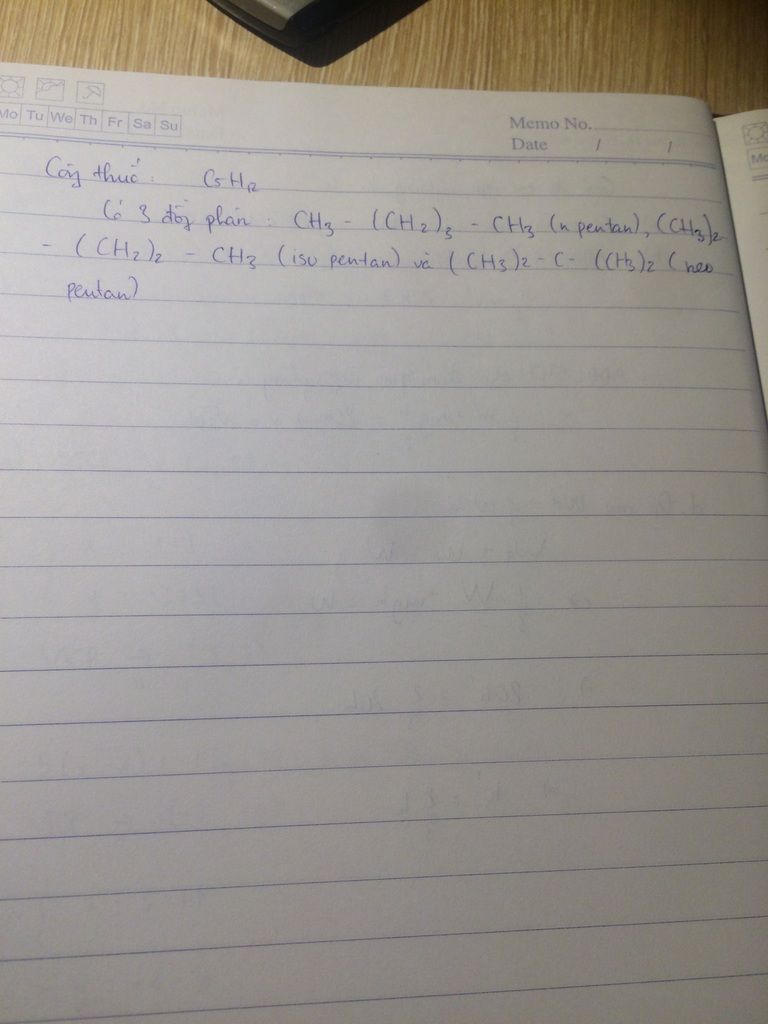 Mo Tu We Th Fr Sa Su
Memo No.
Date / /
Mo
Công thức: C5H12
Có 3 đồng phân: CH3 - (CH2)3 - CH3 (n pentan), (CH3)2
- (CH2)2 - CH3 (iso pentan) và (CH3)2 - C - (CH3)2 (neo
pentan)